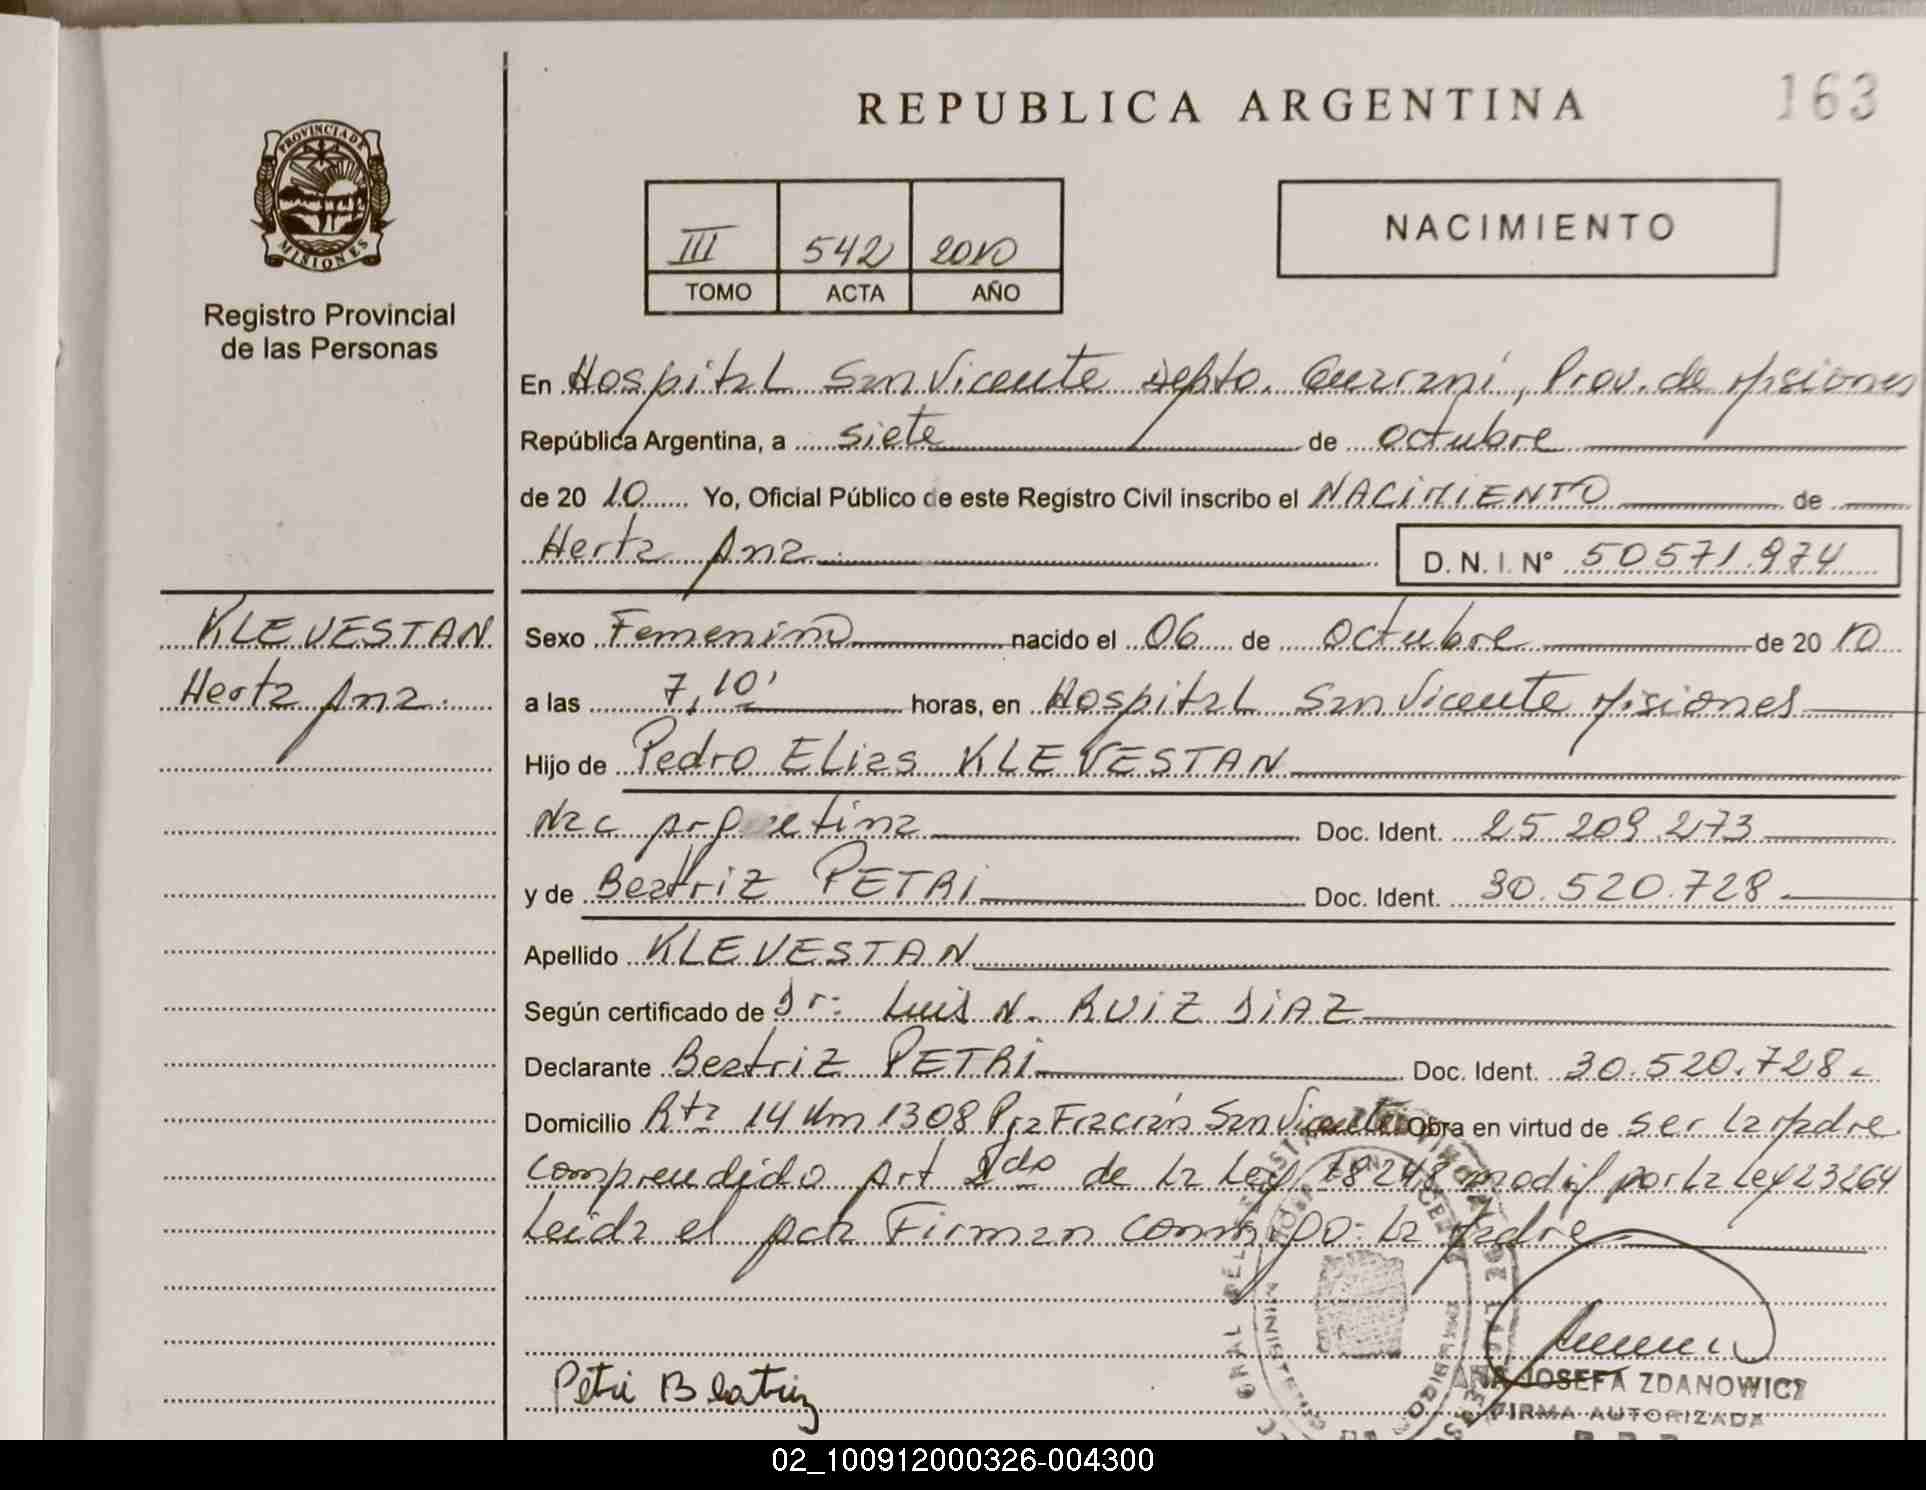 REPUBLICA ARGENTINA
163
PROVINCIA DE
MISIONES
Registro Provincial
de las Personas
III 542 2010
TOMO ACTA AÑO
NACIMIENTO
En Hospital San Vicente Depto. Guarani, Prov. de Misiones
República Argentina, a siete de octubre
de 20 10 Yo, Oficial Público de este Registro Civil inscribo el NACIMIENTO de
Herta Ana. D. N. I. Nº 50571.974
KLEVESTAN
Herta Ana.
Sexo Femenino nacido el 06 de octubre de 20 10
a las 7,10' horas, en Hospital San Vicente Misiones
Hijo de Pedro Elias KLEVESTAN
Nac Argentina Doc. Ident. 25 209.273
y de Beatriz PETRI Doc. Ident. 30.520.728.
Apellido KLEVESTAN
Según certificado de Dr: Luis N. RUIZ DIAZ
Declarante Beatriz PETRI Doc. Ident. 30.520.728.
Domicilio Rta 14 Km 1308 Pja Fracrán San Vicente Obra en virtud de ser la Madre
comprendido Art 2do de la Ley 18248 modif por la Ley 23264
Leida el Acta Firman conmigo: la Madre
Petri Beatriz
ANA JOSEFA ZDANOWICZ
FIRMA AUTORIZADA
02_100912000326-004300